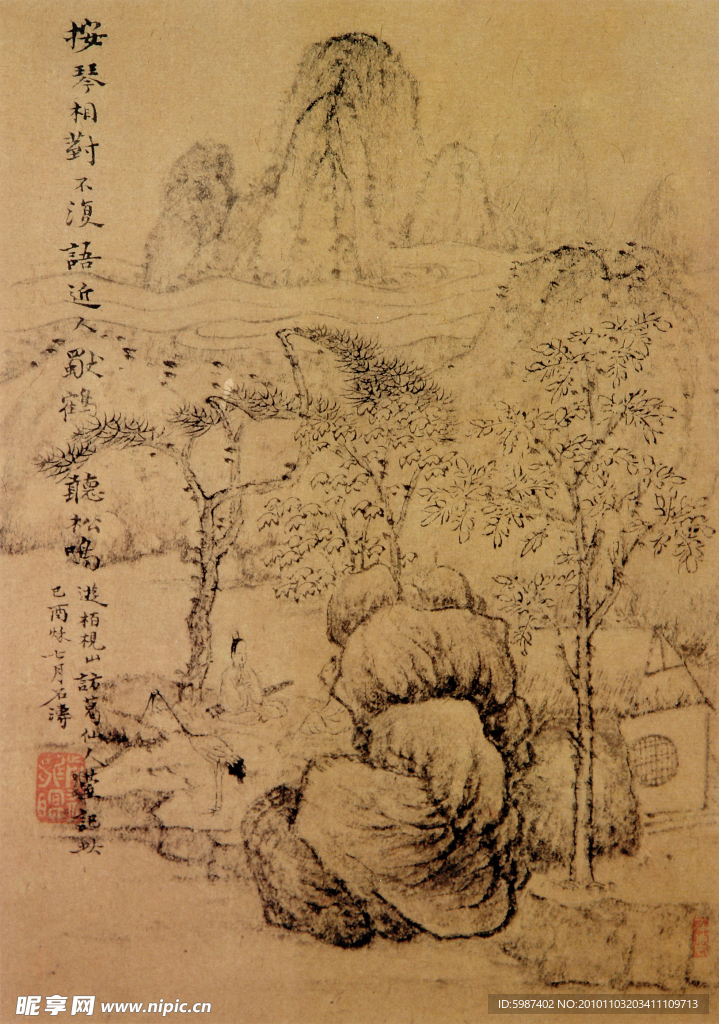 按琴相對不復語近人獸鶴聽松鳴
遊栢梘山訪葛仙人
己酉秌七月石濤
昵享网 www.nipic.cn
ID:5987402 NO:20101103203411109713